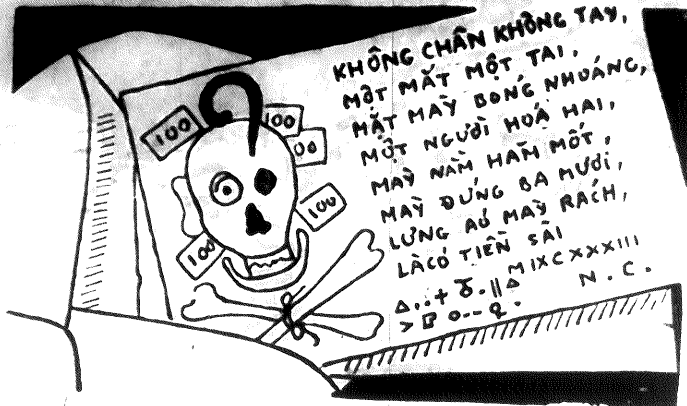 KHÔNG CHÂN KHÔNG TAY,
MỘT MẮT MỘT TAI.
MẶT MÀY BONG NHOÁNG,
MỘT NGƯỜI HOÁ HAI,
MAY NẰM HĂM MỐT,
MAY ĐỨNG BA MƯƠI,
LƯNG AÓ MAY RÁCH,
LÀ CÓ TIỀN SÀI
MIXCXXXIII
N.C.
100
100
00
100
100